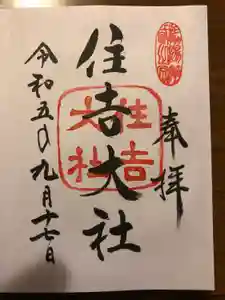 奉拝
住吉大社
住吉大社
令和五年九月十七日